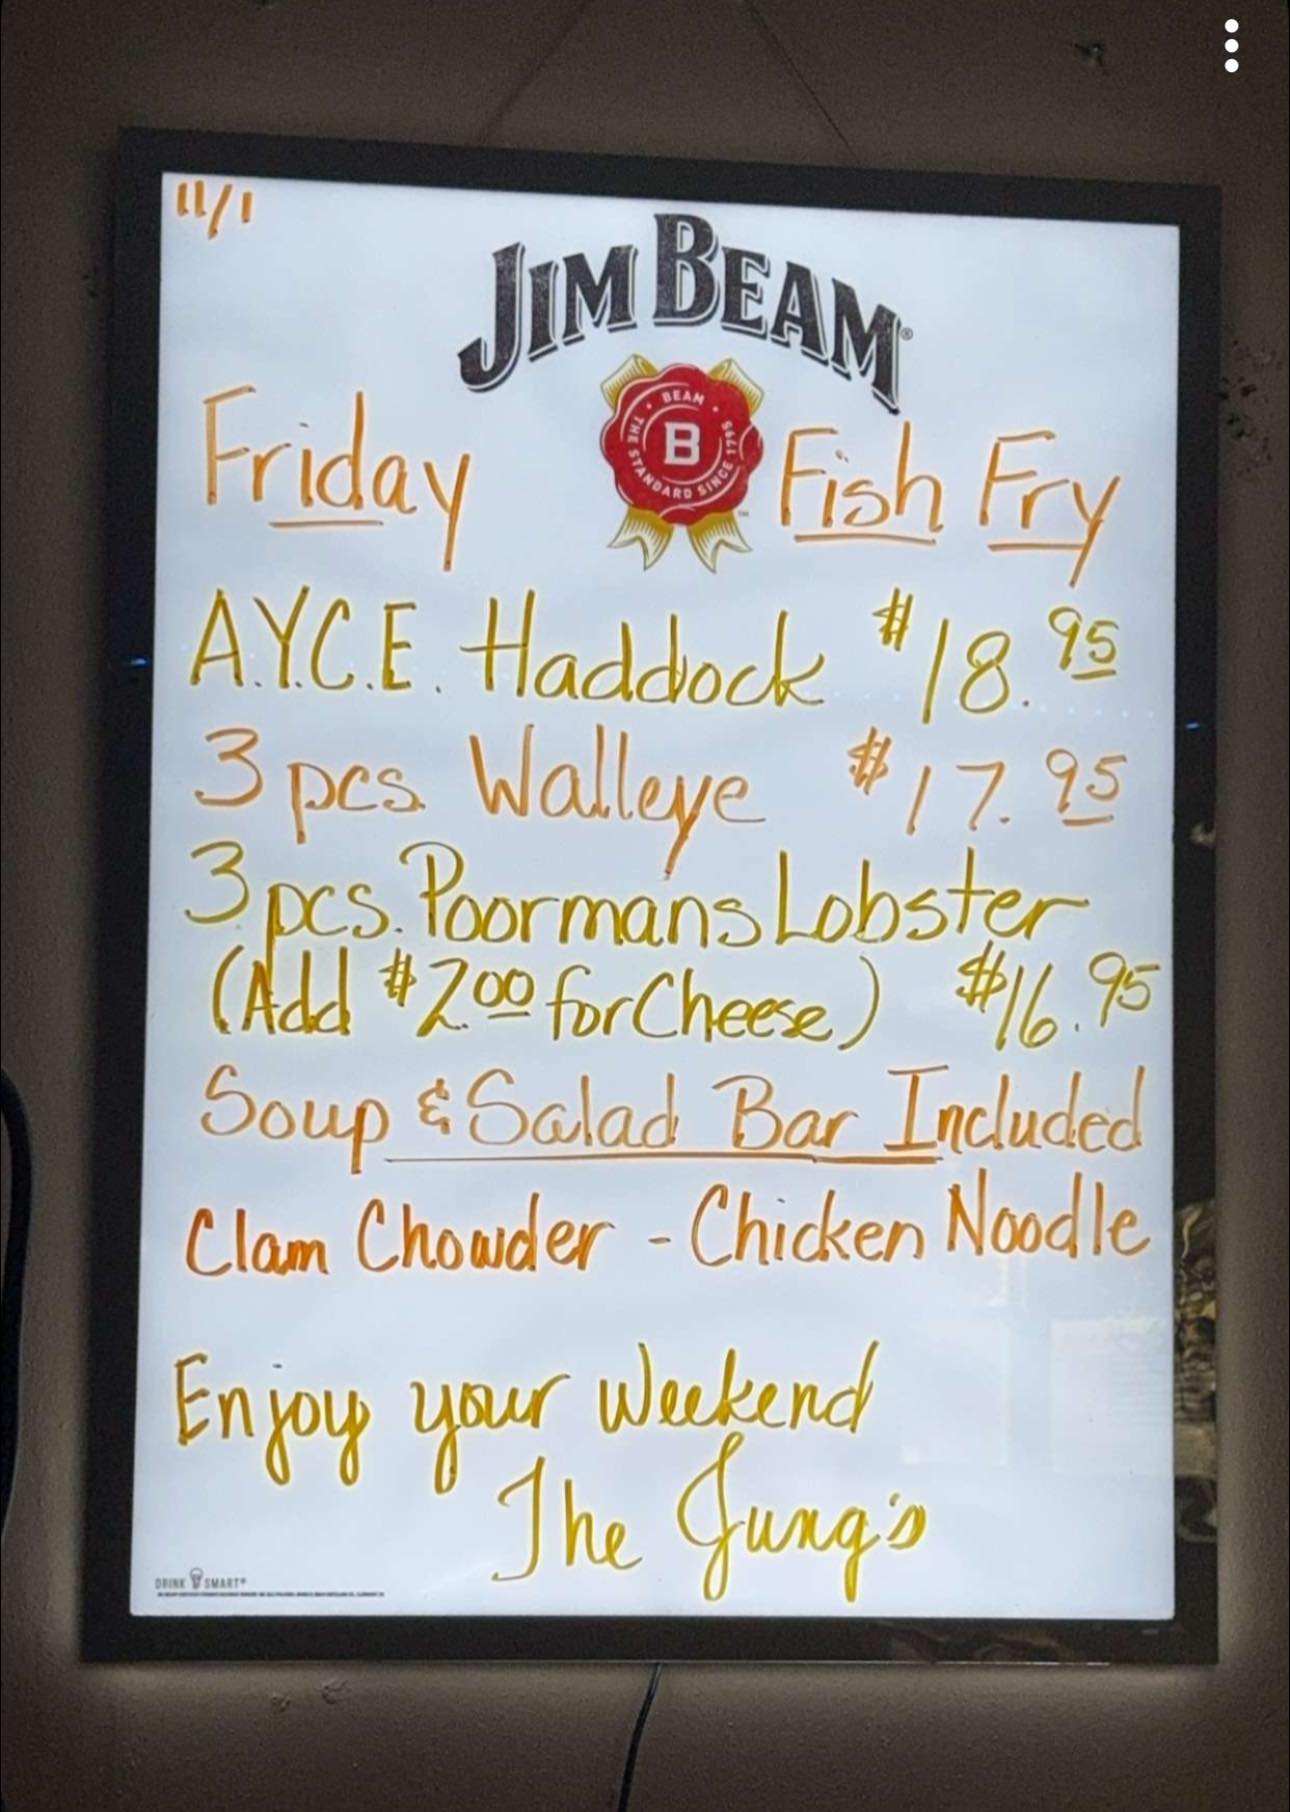 11/1
JIM BEAM®
BEAM
B
THE STANDARD SINCE 1795
Friday Fish Fry
A.Y.C.E. Haddock $18.95
3 pcs. Walleye $17.95
3 pcs. Poormans Lobster
(Add $2.00 for Cheese) $16.95
Soup & Salad Bar Included
Clam Chowder - Chicken Noodle
Enjoy your Weekend
The Jung's
DRINK SMART®